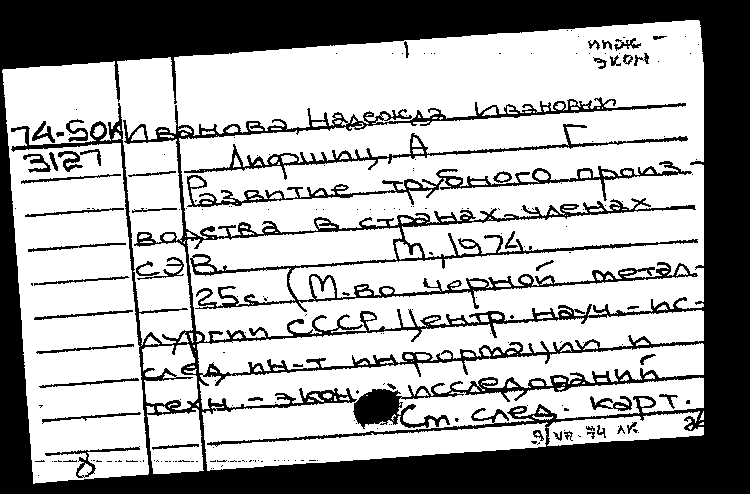 ппэк -
экон
74-50К Иванова, Надежда Ивановн
3127 Лифшиц, А Г
Развитие трубного произ-
водства в странах-членах
СЭВ. М., 1974.
25с. (М-во черной метал-
лургии СССР. Центр. науч.-ис-
след. ин-т информации и
техн.-экон. исследований
См. след. карт.
9/VII-74 ЛК
8